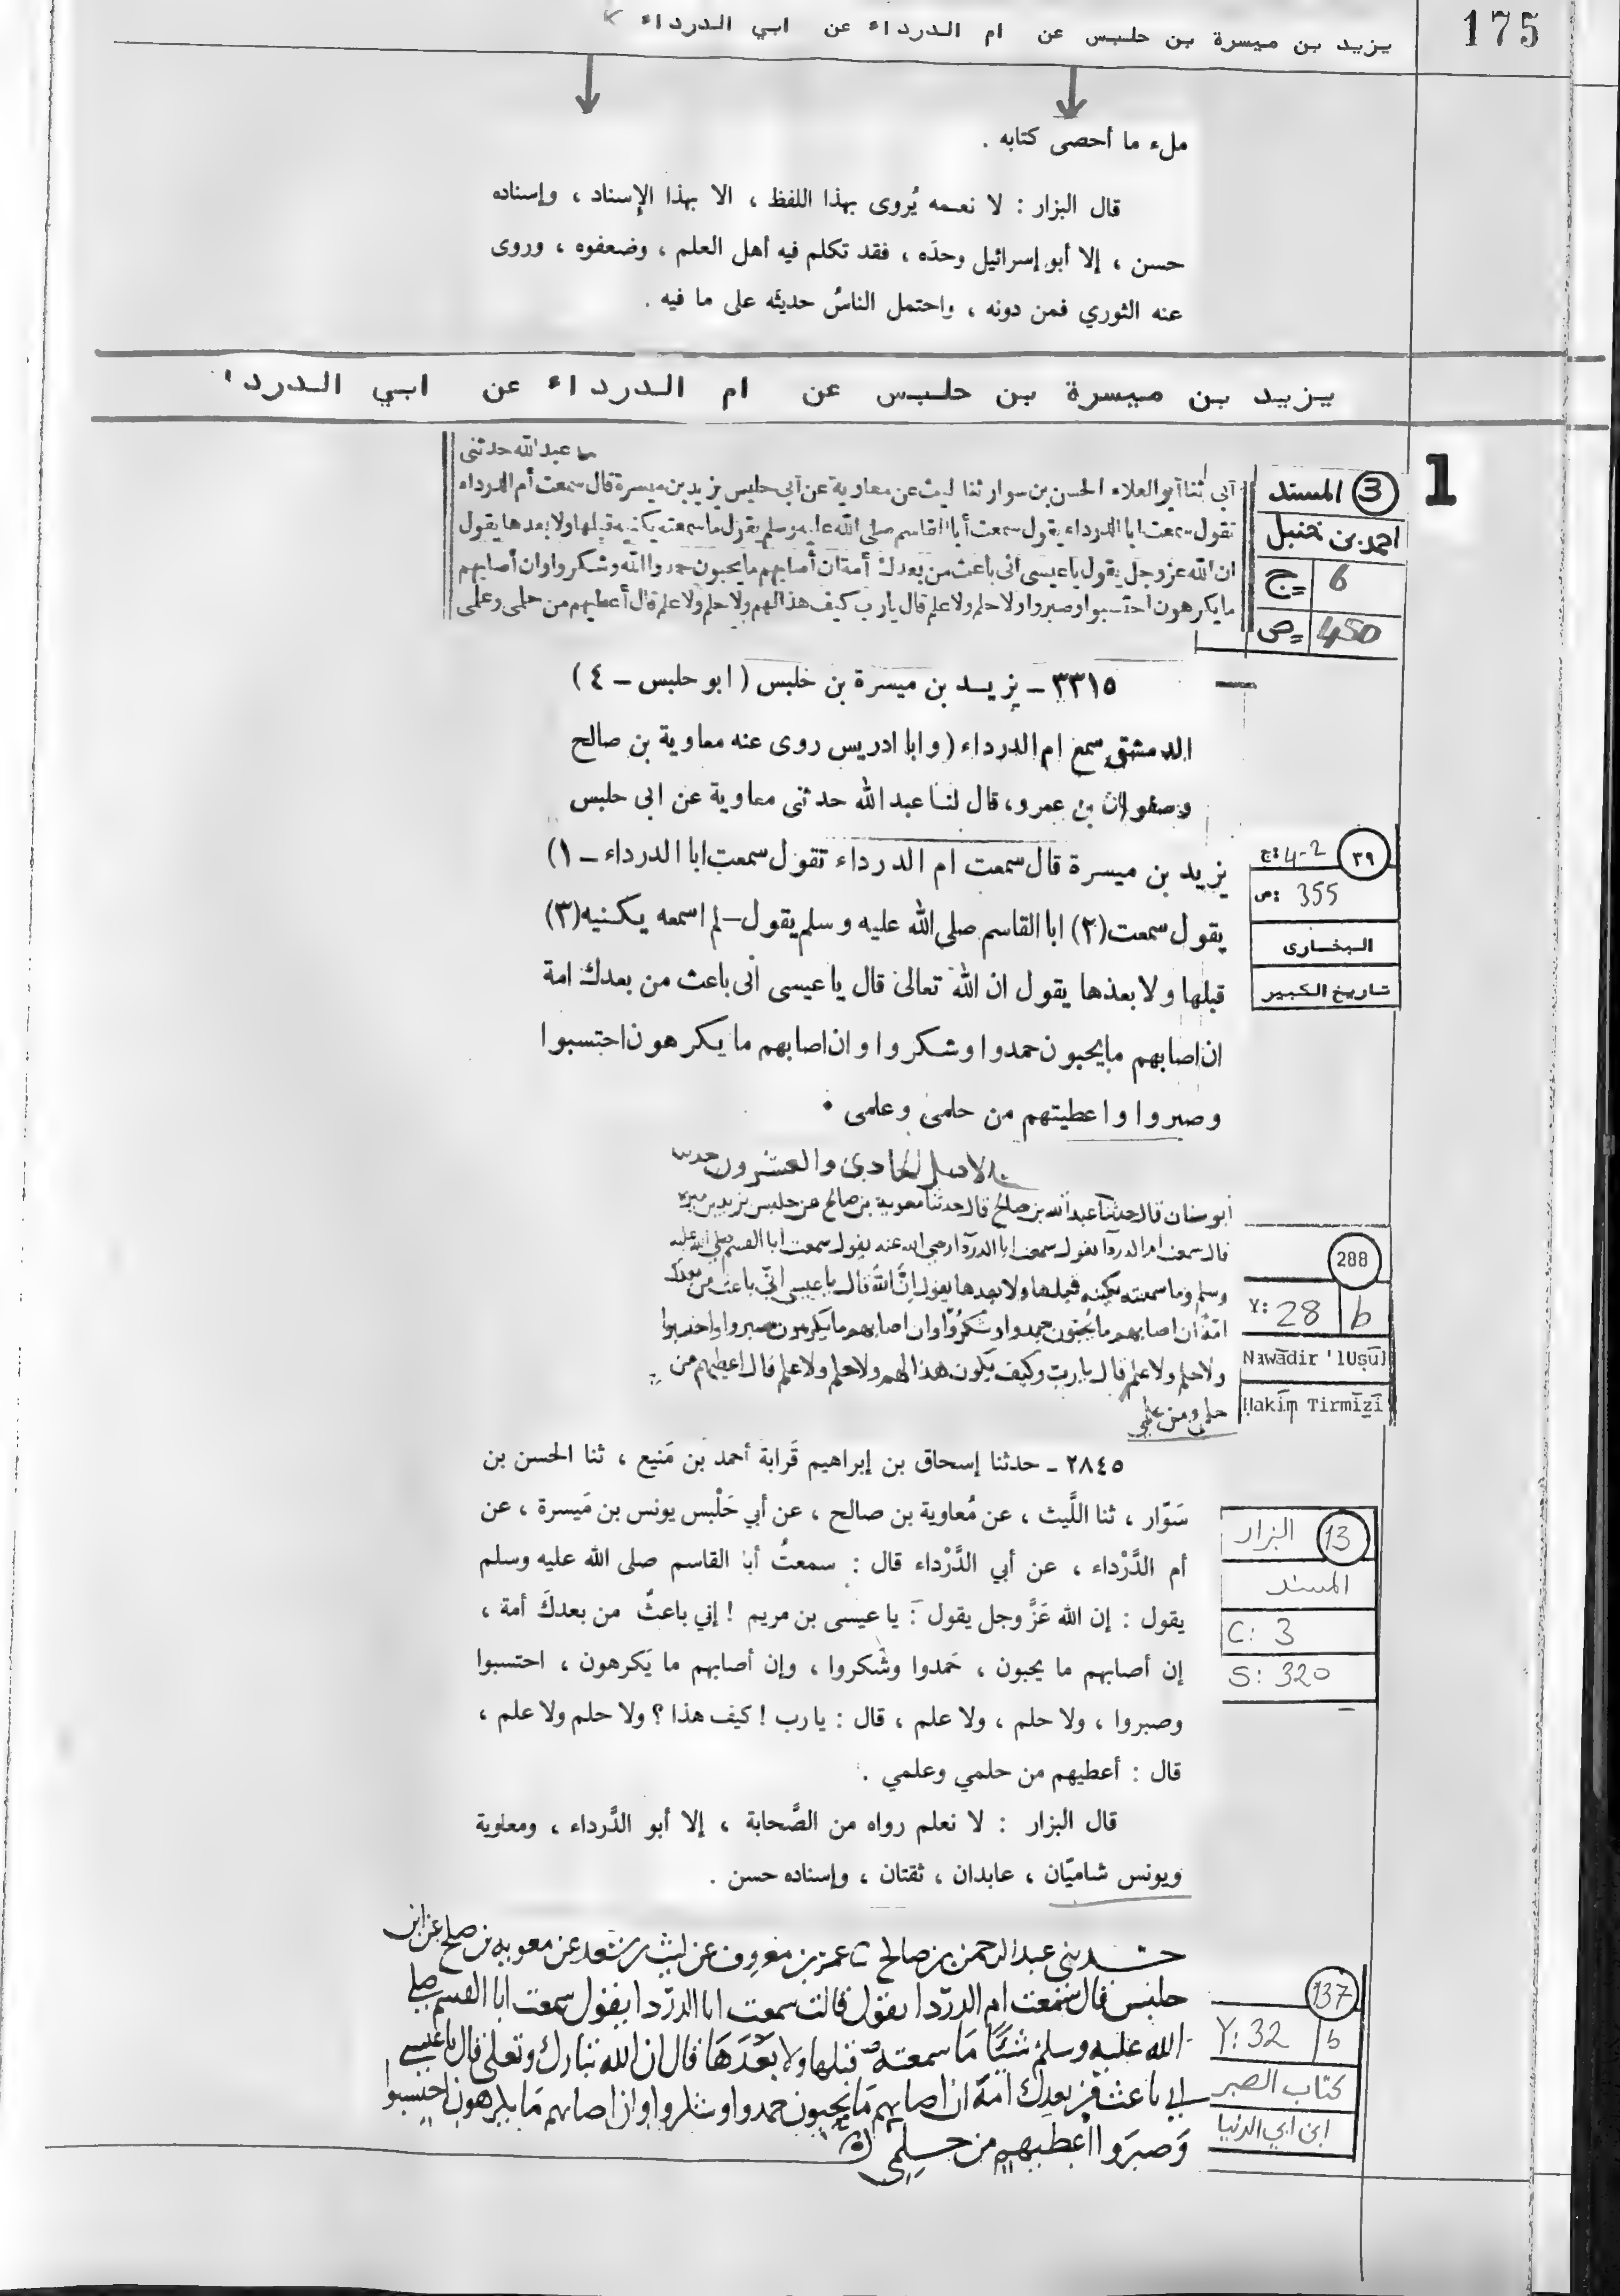 175
يزيد بن ميسرة بن حلبس عن ام الدرداء عن ابي الدرداء
ملء ما أحصى كتابه .
قال البزار : لا نعـمه يُروى بهذا اللفظ ، الا بهذا الإسناد ، وإسناده
حسن ، إلا أبو إسرائيل وحدَه ، فقد تكلم فيه أهل العلم ، وضعفوه ، وروى
عنه الثوري فمن دونه ، واحتمل الناسُ حديثه على ما فيه .
يزيد بن ميسرة بن حلبس عن ام الدرداء عن ابي الدرداء
1
3 المسند
احمد بن حنبل
ج 6
ص 450
عبد الله حدثنى
أبى ثنا أبو العلاء الحسن بن سوار ثنا ليث عن معاوية عن أبى حلبس يزيد بن ميسرة قال سمعت أم الدرداء
تقول سمعت ابا الدرداء يقول سمعت أبا القاسم صلى الله عليه وسلم يقول ما سمعته يكنيه قبلها ولا بعدها يقول
ان الله عز وجل يقول يا عيسى انى باعث من بعدك أمة ان أصابهم ما يحبون حمدوا الله وشكروا وان أصابهم
ما يكرهون احتسبوا وصبروا ولا حلم ولا علم قال يا رب كيف هذا لهم ولا حلم ولا علم قال أعطيهم من حلمى وعلمى
٣٣١٥ – يزيد بن ميسرة بن حلبس ( ابو حلبس – ٤ )
الدمشقى سمع ام الدرداء ( وابا ادريس روى عنه معاوية بن صالح
وصفوان بن عمرو، قال لنا عبد الله حدثنى معاوية عن ابى حلبس
يزيد بن ميسرة قال سمعت ام الدرداء تقول سمعت ابا الدرداء – ١)
يقول سمعت (٢) ابا القاسم صلى الله عليه وسلم يقول – لم اسمعه يكنيه (٣)
قبلها ولا بعدها يقول ان الله تعالى قال يا عيسى انى باعث من بعدك امة
ان اصابهم ما يحبون حمدوا وشكروا وان اصابهم ما يكرهون احتسبوا
وصبروا واعطيتهم من حلمى وعلمى .
٣٩
ج: 4-2
ص: 355
البخارى
تاريخ الكبير
الاصل الحادى والعشرون حدثنا
ابو سنان قال حدثنا عبد الله بن صالح قال حدثنا معوية بن صالح عن حلبس يزيد بن ميسرة
قال سمعت ام الدردآ تقول سمعت ابا الدردآ رضي الله عنه يقول سمعت ابا القسم صلى الله عليه
وسلم وما سمعته يكنيه قبلها ولا بعدها يقول إنَّ الله قال يا عيسى انّي باعث من بعدك
امّة ان اصابهم ما يُحبّون حمدوا وشكرُوا وان اصابهم ما يكرهون صبروا واحتسبوا
ولا حلم ولا علم قال يا ربّ وكيف يكون هذا لهم ولا حلم ولا علم قال اعطيهم من
حلمى ومن علمي
288
Y: 28 b
Nawādir 'lUṣūl
Ḥakīm Tirmīzī
٢٨٤٥ - حدثنا إسحاق بن إبراهيم قَرابة أحمد بن مَنيع ، ثنا الحسن بن
سَوّار ، ثنا اللَّيث ، عن مُعاوية بن صالح ، عن أبي حَلْبس يونس بن مَيسرة ، عن
أم الدَّرْداء ، عن أبي الدَّرْداء قال : سمعتُ أبا القاسم صلى الله عليه وسلم
يقول : إن الله عَزَّ وجل يقول : يا عيسى بن مريم ! إني باعثٌ من بعدكَ أمة ،
إن أصابهم ما يحبون ، حَمدوا وشَكروا ، وإن أصابهم ما يَكرهون ، احتسبوا
وصبروا ، ولا حلم ، ولا علم ، قال : يا رب ! كيف هذا ؟ ولا حلم ولا علم ،
قال : أعطيهم من حلمي وعلمي .
قال البزار : لا نعلم رواه من الصَّحابة ، إلا أبو الدَّرداء ، ومعاوية
ويونس شاميّان ، عابدان ، ثقتان ، وإسناده حسن .
13 البزار
المسند
C: 3
S: 320
حدثني عبد الرحمن بن صالح ثنا عمرو بن معروف عن ليث بن سعد عن معوية بن صلح عن ابى
حلبس قال سمعت ام الدردا تقول قالت سمعت ابا الدردا يقول سمعت ابا القسم صلى
الله عليه وسلم شيئًا مَا سمعته قبلها ولا بَعْدَهَا قال ان الله تبارك وتعلى قال يا عيسى
اني باعث من بعدك امة ان اصابهم مَا يحبون حمدوا وشكروا وان اصابهم مَا يكرهون احتسبوا
وَصبرَوا اعطيهم من حلمي
137
Y: 32 b
كتاب الصبر
ابن ابي الدنيا